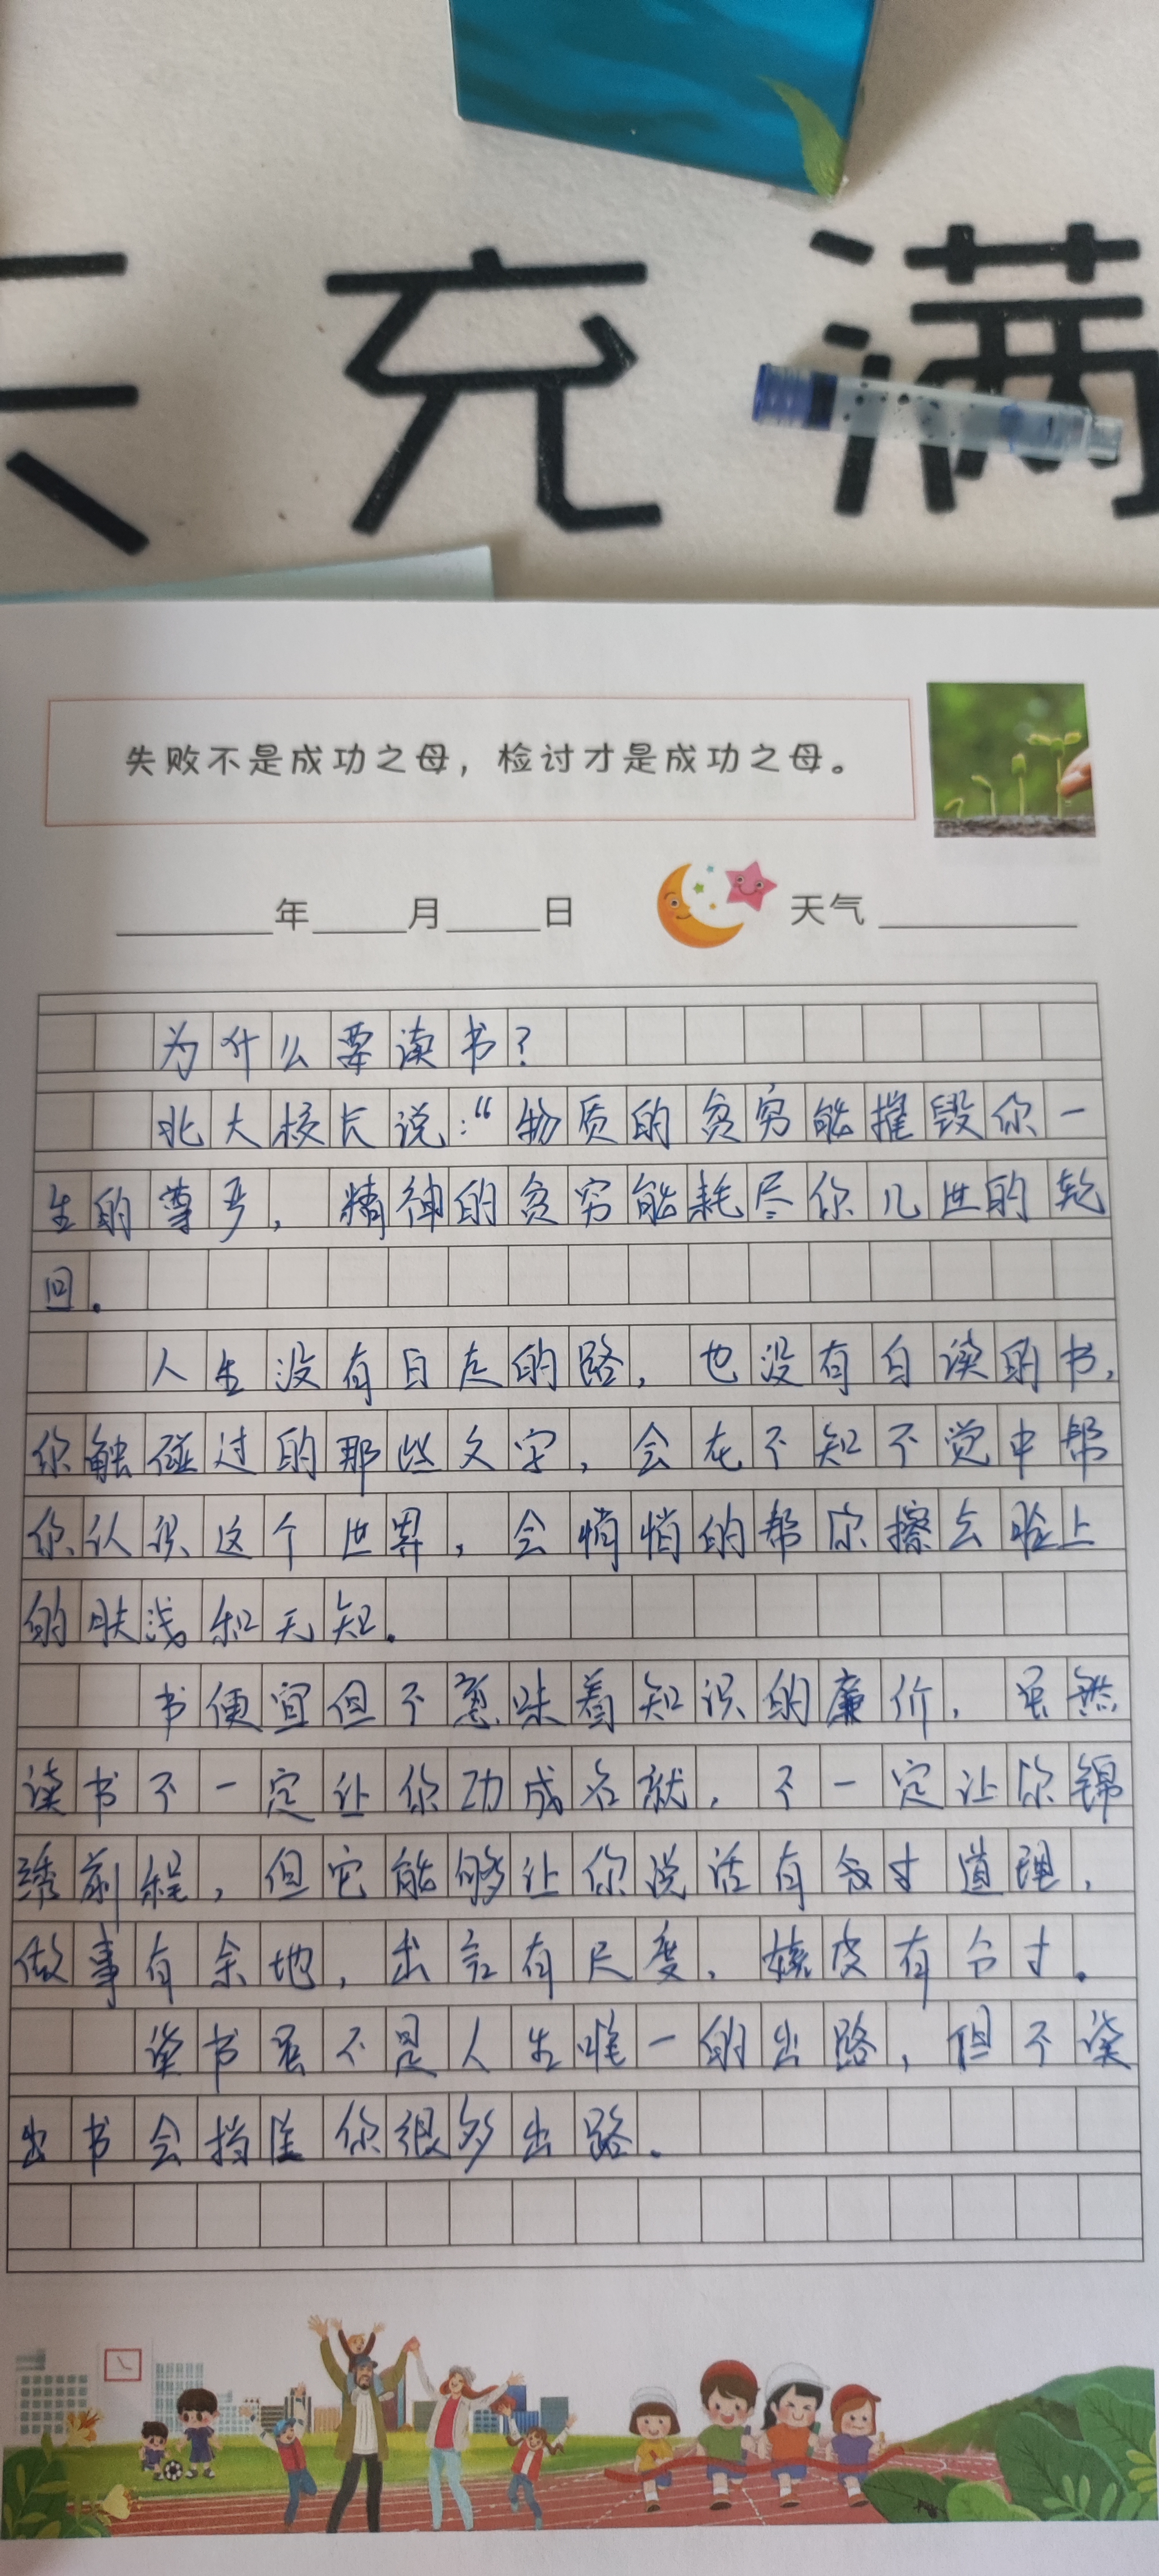 充满
失败不是成功之母，检讨才是成功之母。
年 月 日 天气
为什么要读书？
北大校长说：“物质的贫穷能摧毁你一
生的尊严，精神的贫穷能耗尽你几世的轮
回。
人生没有白走的路，也没有白读的书，
你触碰过的那些文字，会在不知不觉中帮
你认识这个世界，会悄悄的帮你擦去脸上
的肤浅和无知。
书便宜但不意味着知识的廉价，虽然
读书不一定让你功成名就，不一定让你锦
绣前程，但它能够让你说话有分寸道理，
做事有余地，出言有尺度，嬉皮有分寸。
读书虽不是人生唯一的出路，但不读
出书会挡住你很多出路。